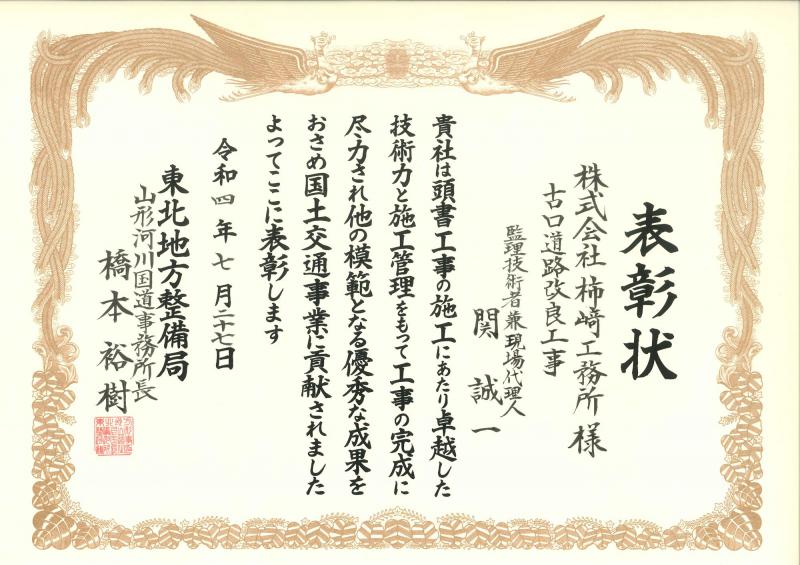 表彰状
株式会社柿﨑工務所様
古口道路改良工事
監理技術者兼現場代理人
関誠一
貴社は頭書工事の施工にあたり卓越した
技術力と施工管理をもって工事の完成に
尽力され他の模範となる優秀な成果を
おさめ国土交通事業に貢献されました
よってここに表彰します
令和四年七月二十七日
東北地方整備局
山形河川国道事務所長
橋本裕樹